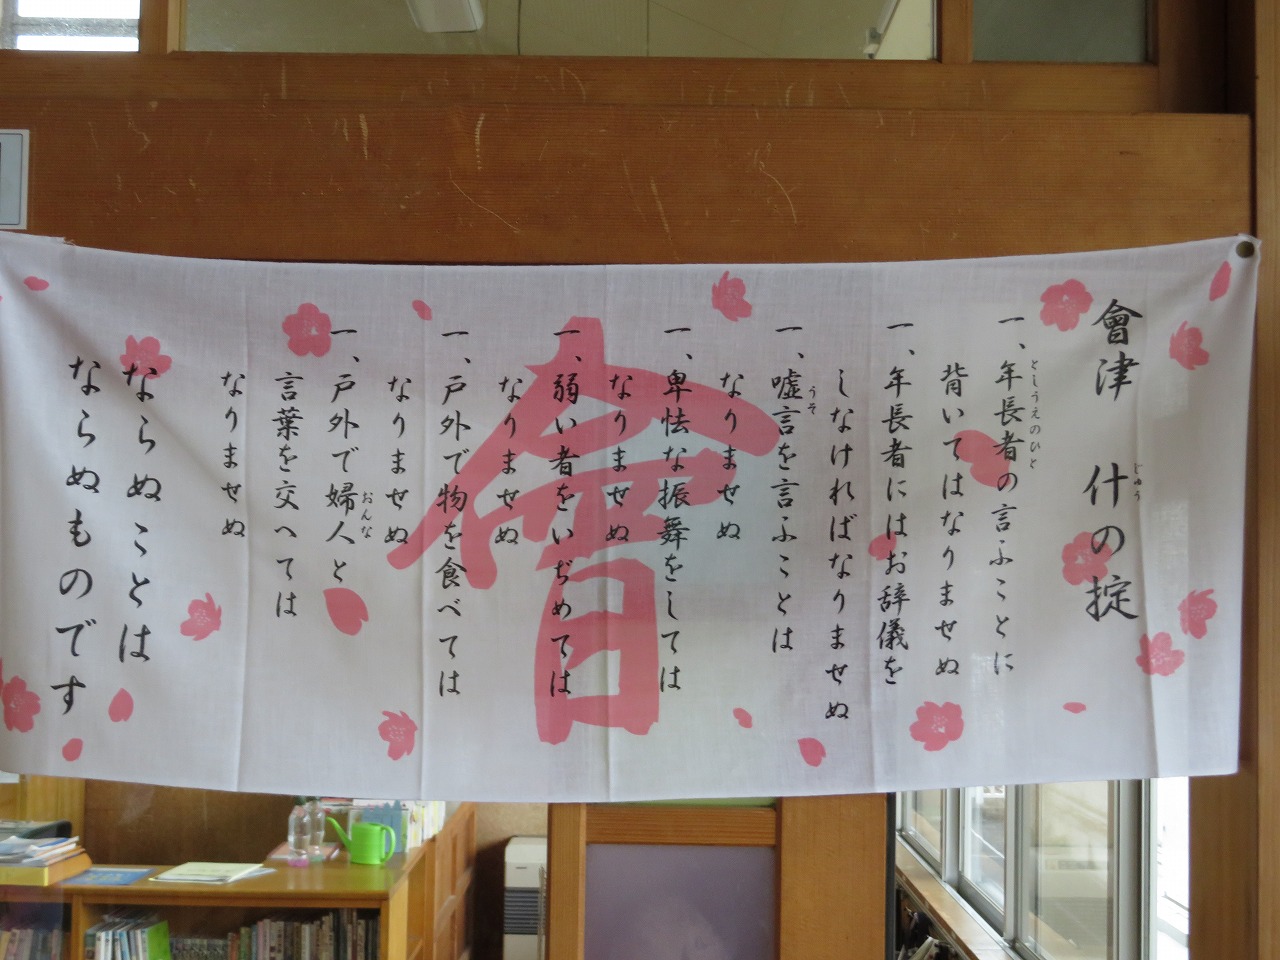 會津 什の掟
じゅう
一、年長者の言ふことに
としうえのひと
背いてはなりませぬ
一、年長者にはお辞儀を
しなければなりませぬ
一、嘘言を言ふことは
うそ
なりませぬ
一、卑怯な振舞をしては
なりませぬ
一、弱い者をいぢめては
なりませぬ
一、戸外で物を食べては
なりませぬ
一、戸外で婦人と
おんな
言葉を交へては
なりませぬ
ならぬことは
ならぬものです
會